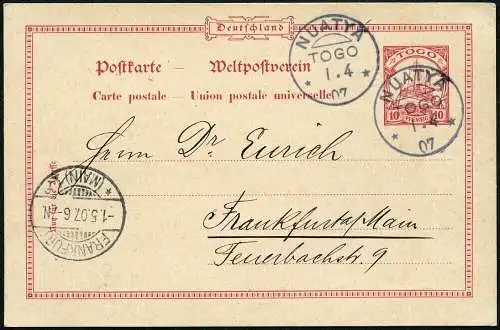 Deutschland
NUATYA
TOGO
1.4
07
TOGO
10 PFENNIG 10
NUATYA
TOGO
1.4
07
Postkarte — Weltpostverein
Carte postale — Union postale universelle
Herrn Dr. Eurich
Frankfurt a/Main
Feuerbachstr. 9
(MAIN)
-1.5.07.6-7N
FRANKFURT